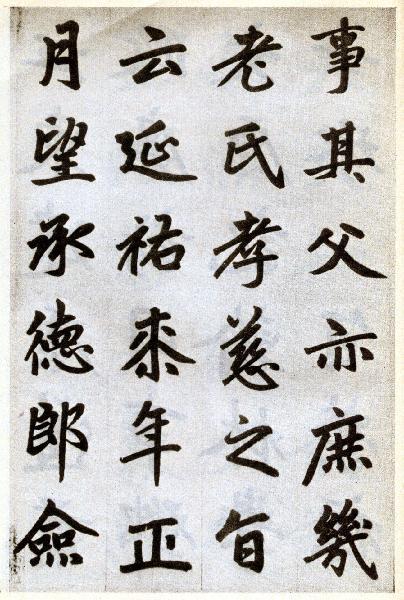 事其父亦庶幾
老氏孝慈之旨
云延祐來年正
月望承德郎僉